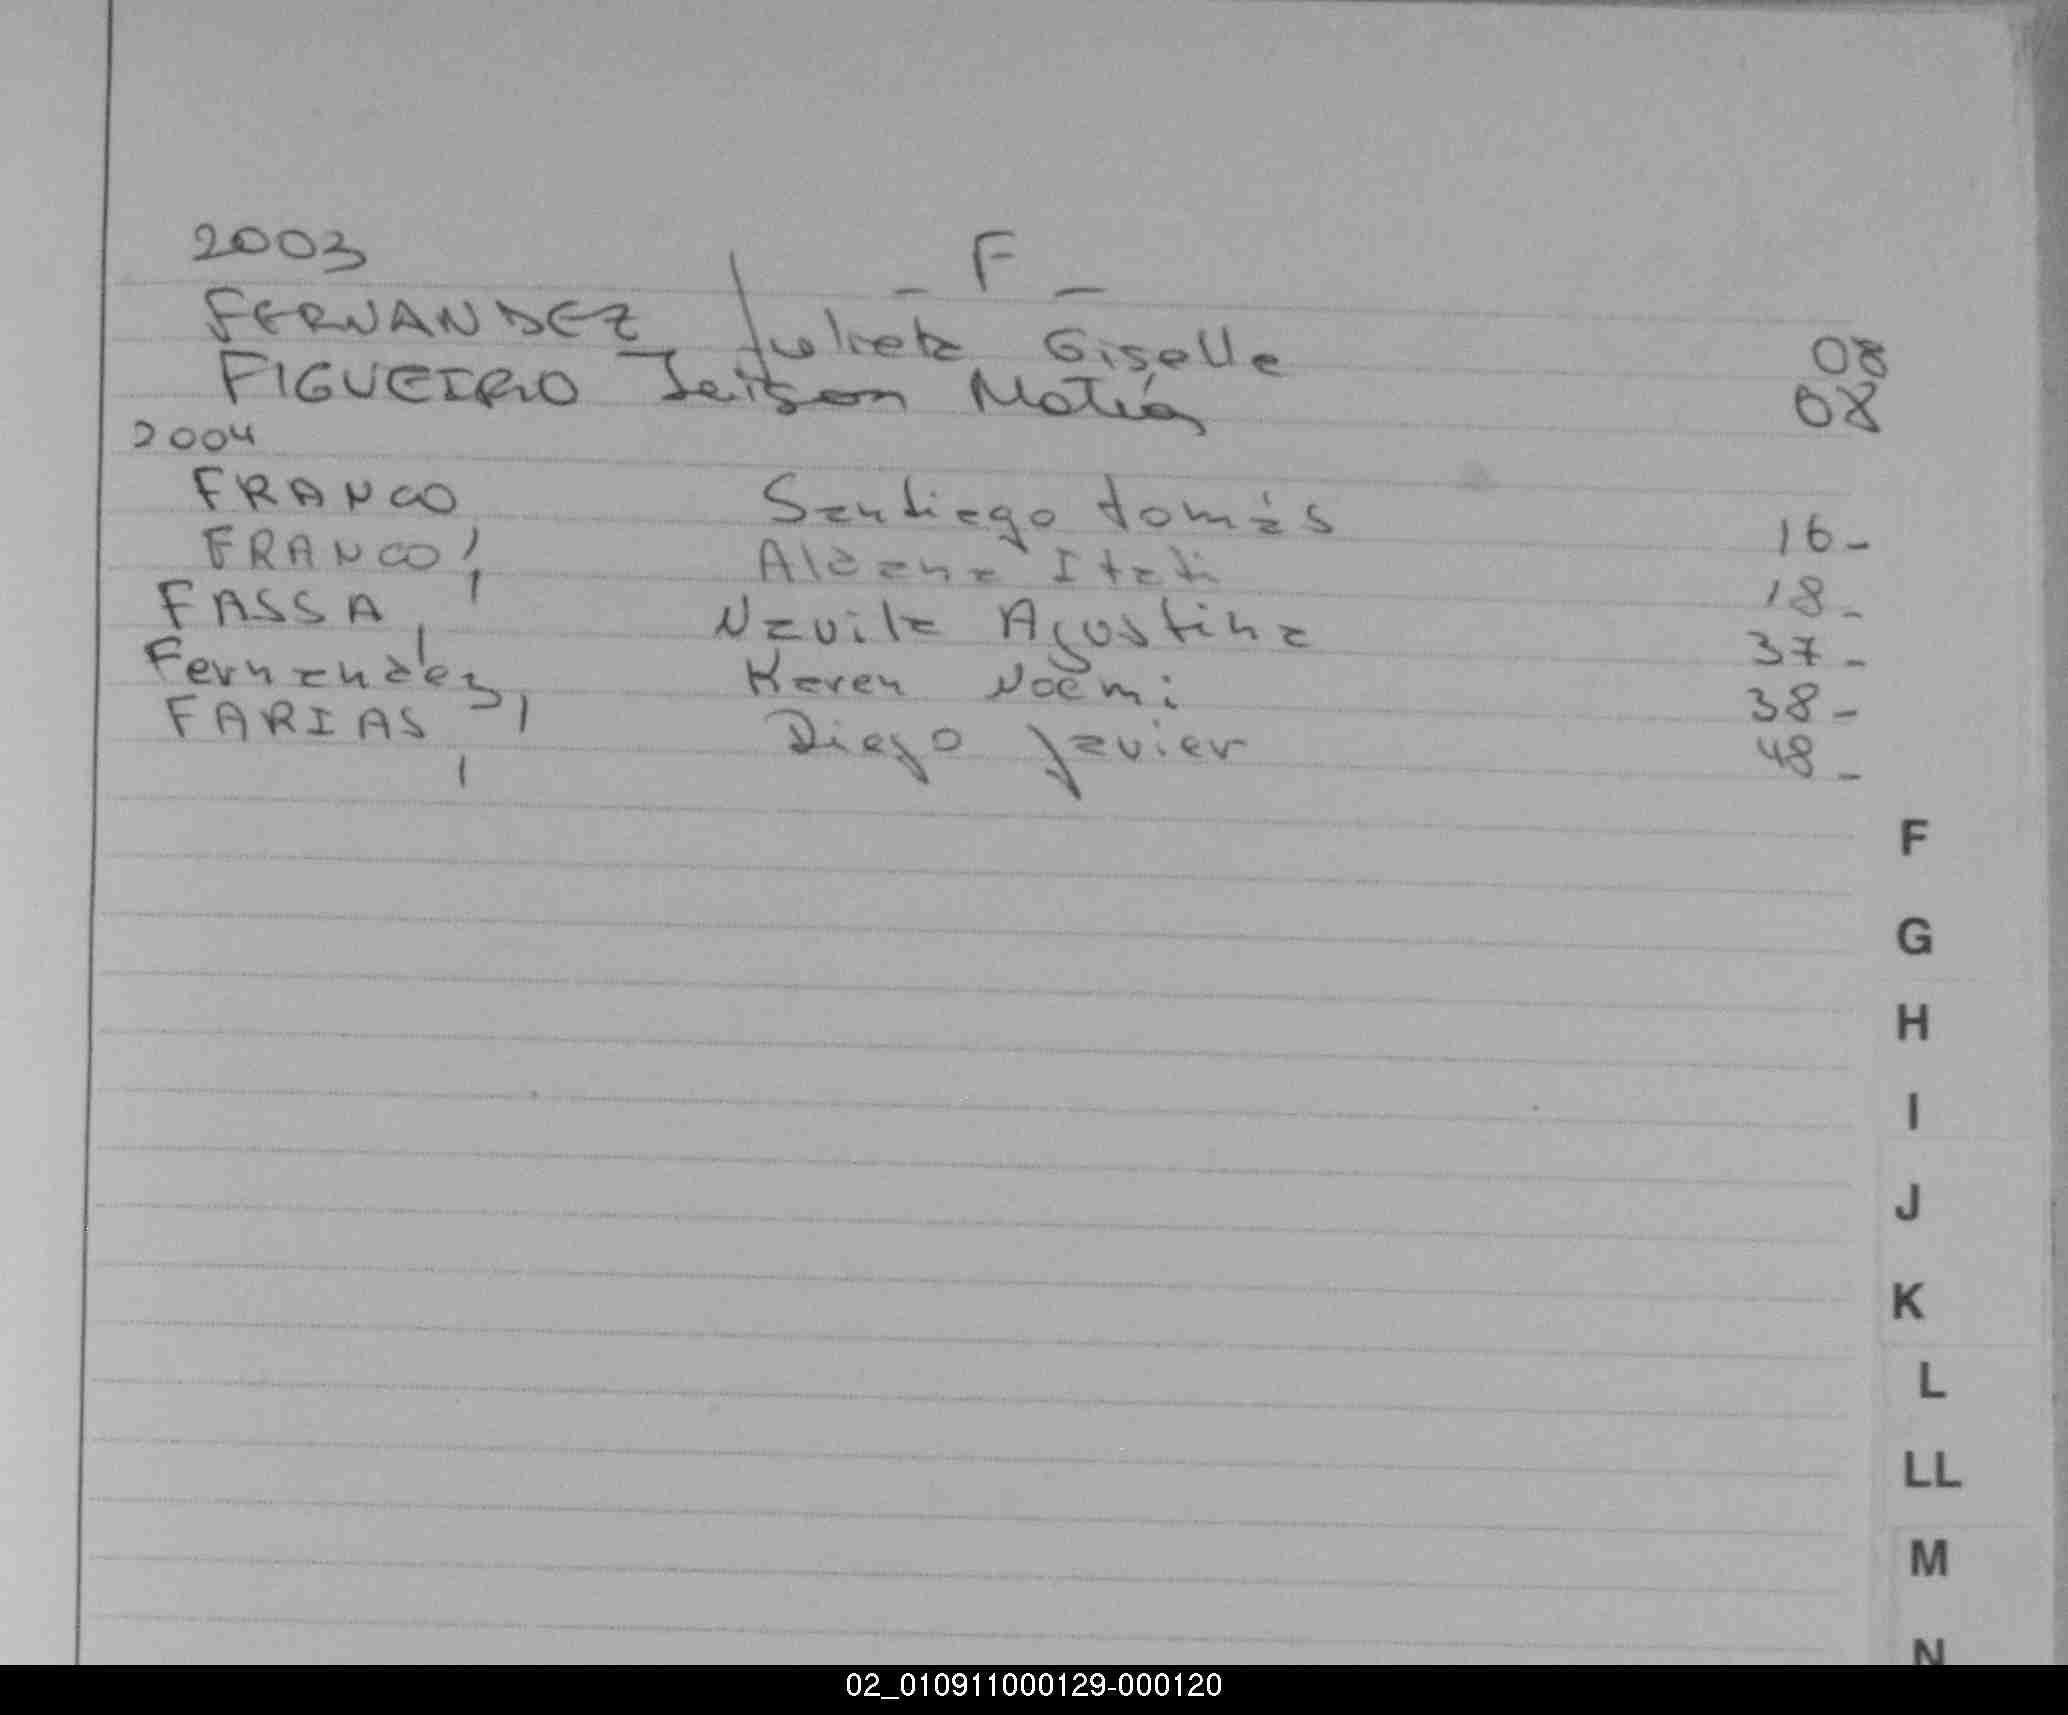 2003
_ F _
FERNANDEZ Julieta Giselle 08
FIGUEIRO Jeison Matías 08
2004
FRANCO, Santiago tomás 16-
FRANCO, Aldana Itatí 18-
FASSA, Navila Agustina 37-
Fernandez, Karen Noemi 38-
FARIAS, Diego Javier 48-
F
G
H
I
J
K
L
LL
M
N
02_010911000129-000120